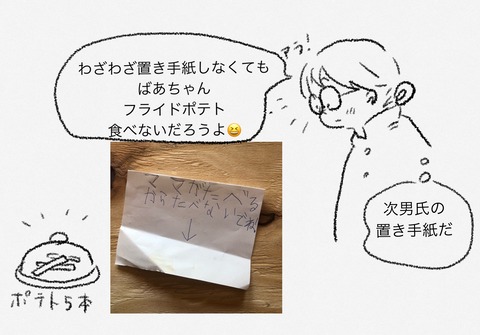 アラ!
わざわざ置き手紙しなくても
ばあちゃん
フライドポテト
食べないだろうよ😆
ママがたべる
からたべないでね
↓
次男氏の
置き手紙だ
ポテト5本